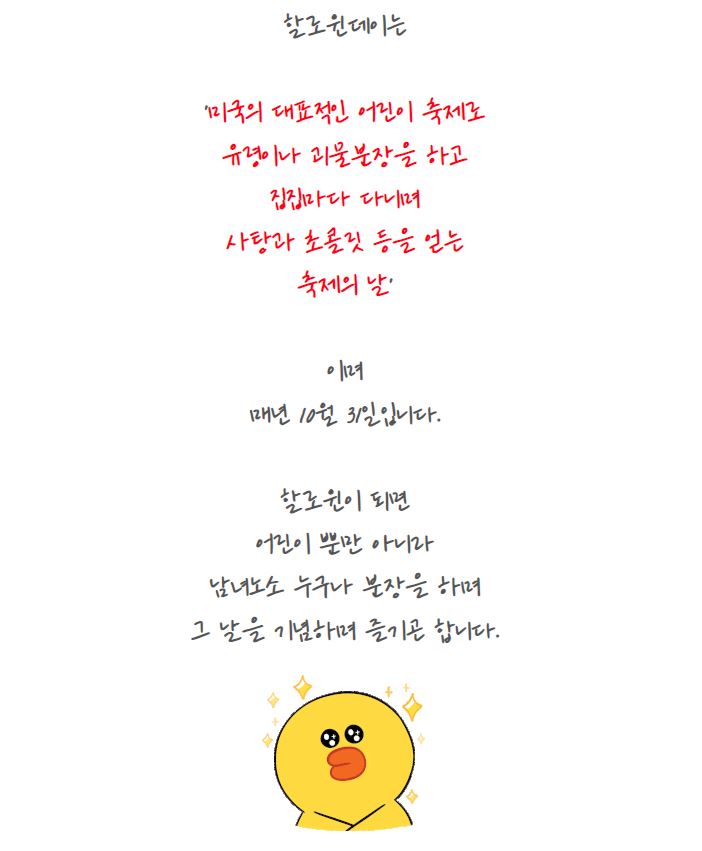 할로윈데이는
'미국의 대표적인 어린이 축제로
유령이나 괴물분장을 하고
집집마다 다니며
사탕과 초콜릿 등을 얻는
축제의 날'
이며
매년 10월 31일입니다.
할로윈이 되면
어린이 뿐만 아니라
남녀노소 누구나 분장을 하며
그 날을 기념하며 즐기곤 합니다.